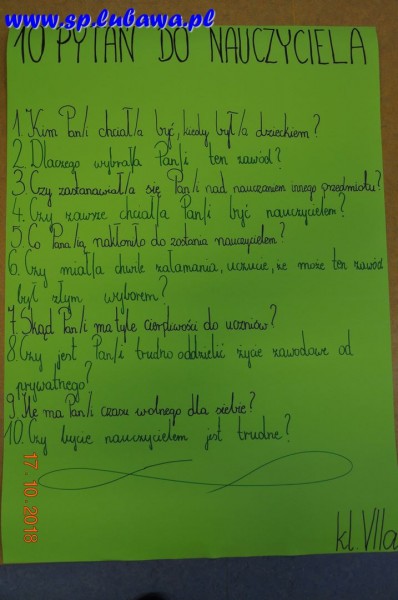 www.sp.lubawa.pl
10 PYTAŃ DO NAUCZYCIELA
1. Kim Pan/i chciał/a być, kiedy był/a dzieckiem?
2. Dlaczego wybrał/a Pan/i ten zawód?
3. Czy zastanawiał/a się Pan/i nad nauczaniem innego przedmiotu?
4. Czy zawsze chciał/a Pan/i być nauczycielem?
5. Co Pana/ią nakłoniło do zostania nauczycielem?
6. Czy miał/a chwile załamania, uczucie, że może ten zawód
był złym wyborem?
7. Skąd Pan/i ma tyle cierpliwości do uczniów?
8. Czy jest Pan/i trudno oddzielić życie zawodowe od
prywatnego?
9. Ile ma Pan/i czasu wolnego dla siebie?
10. Czy bycie nauczycielem jest trudne?
kl. VIIa
17.10.2018